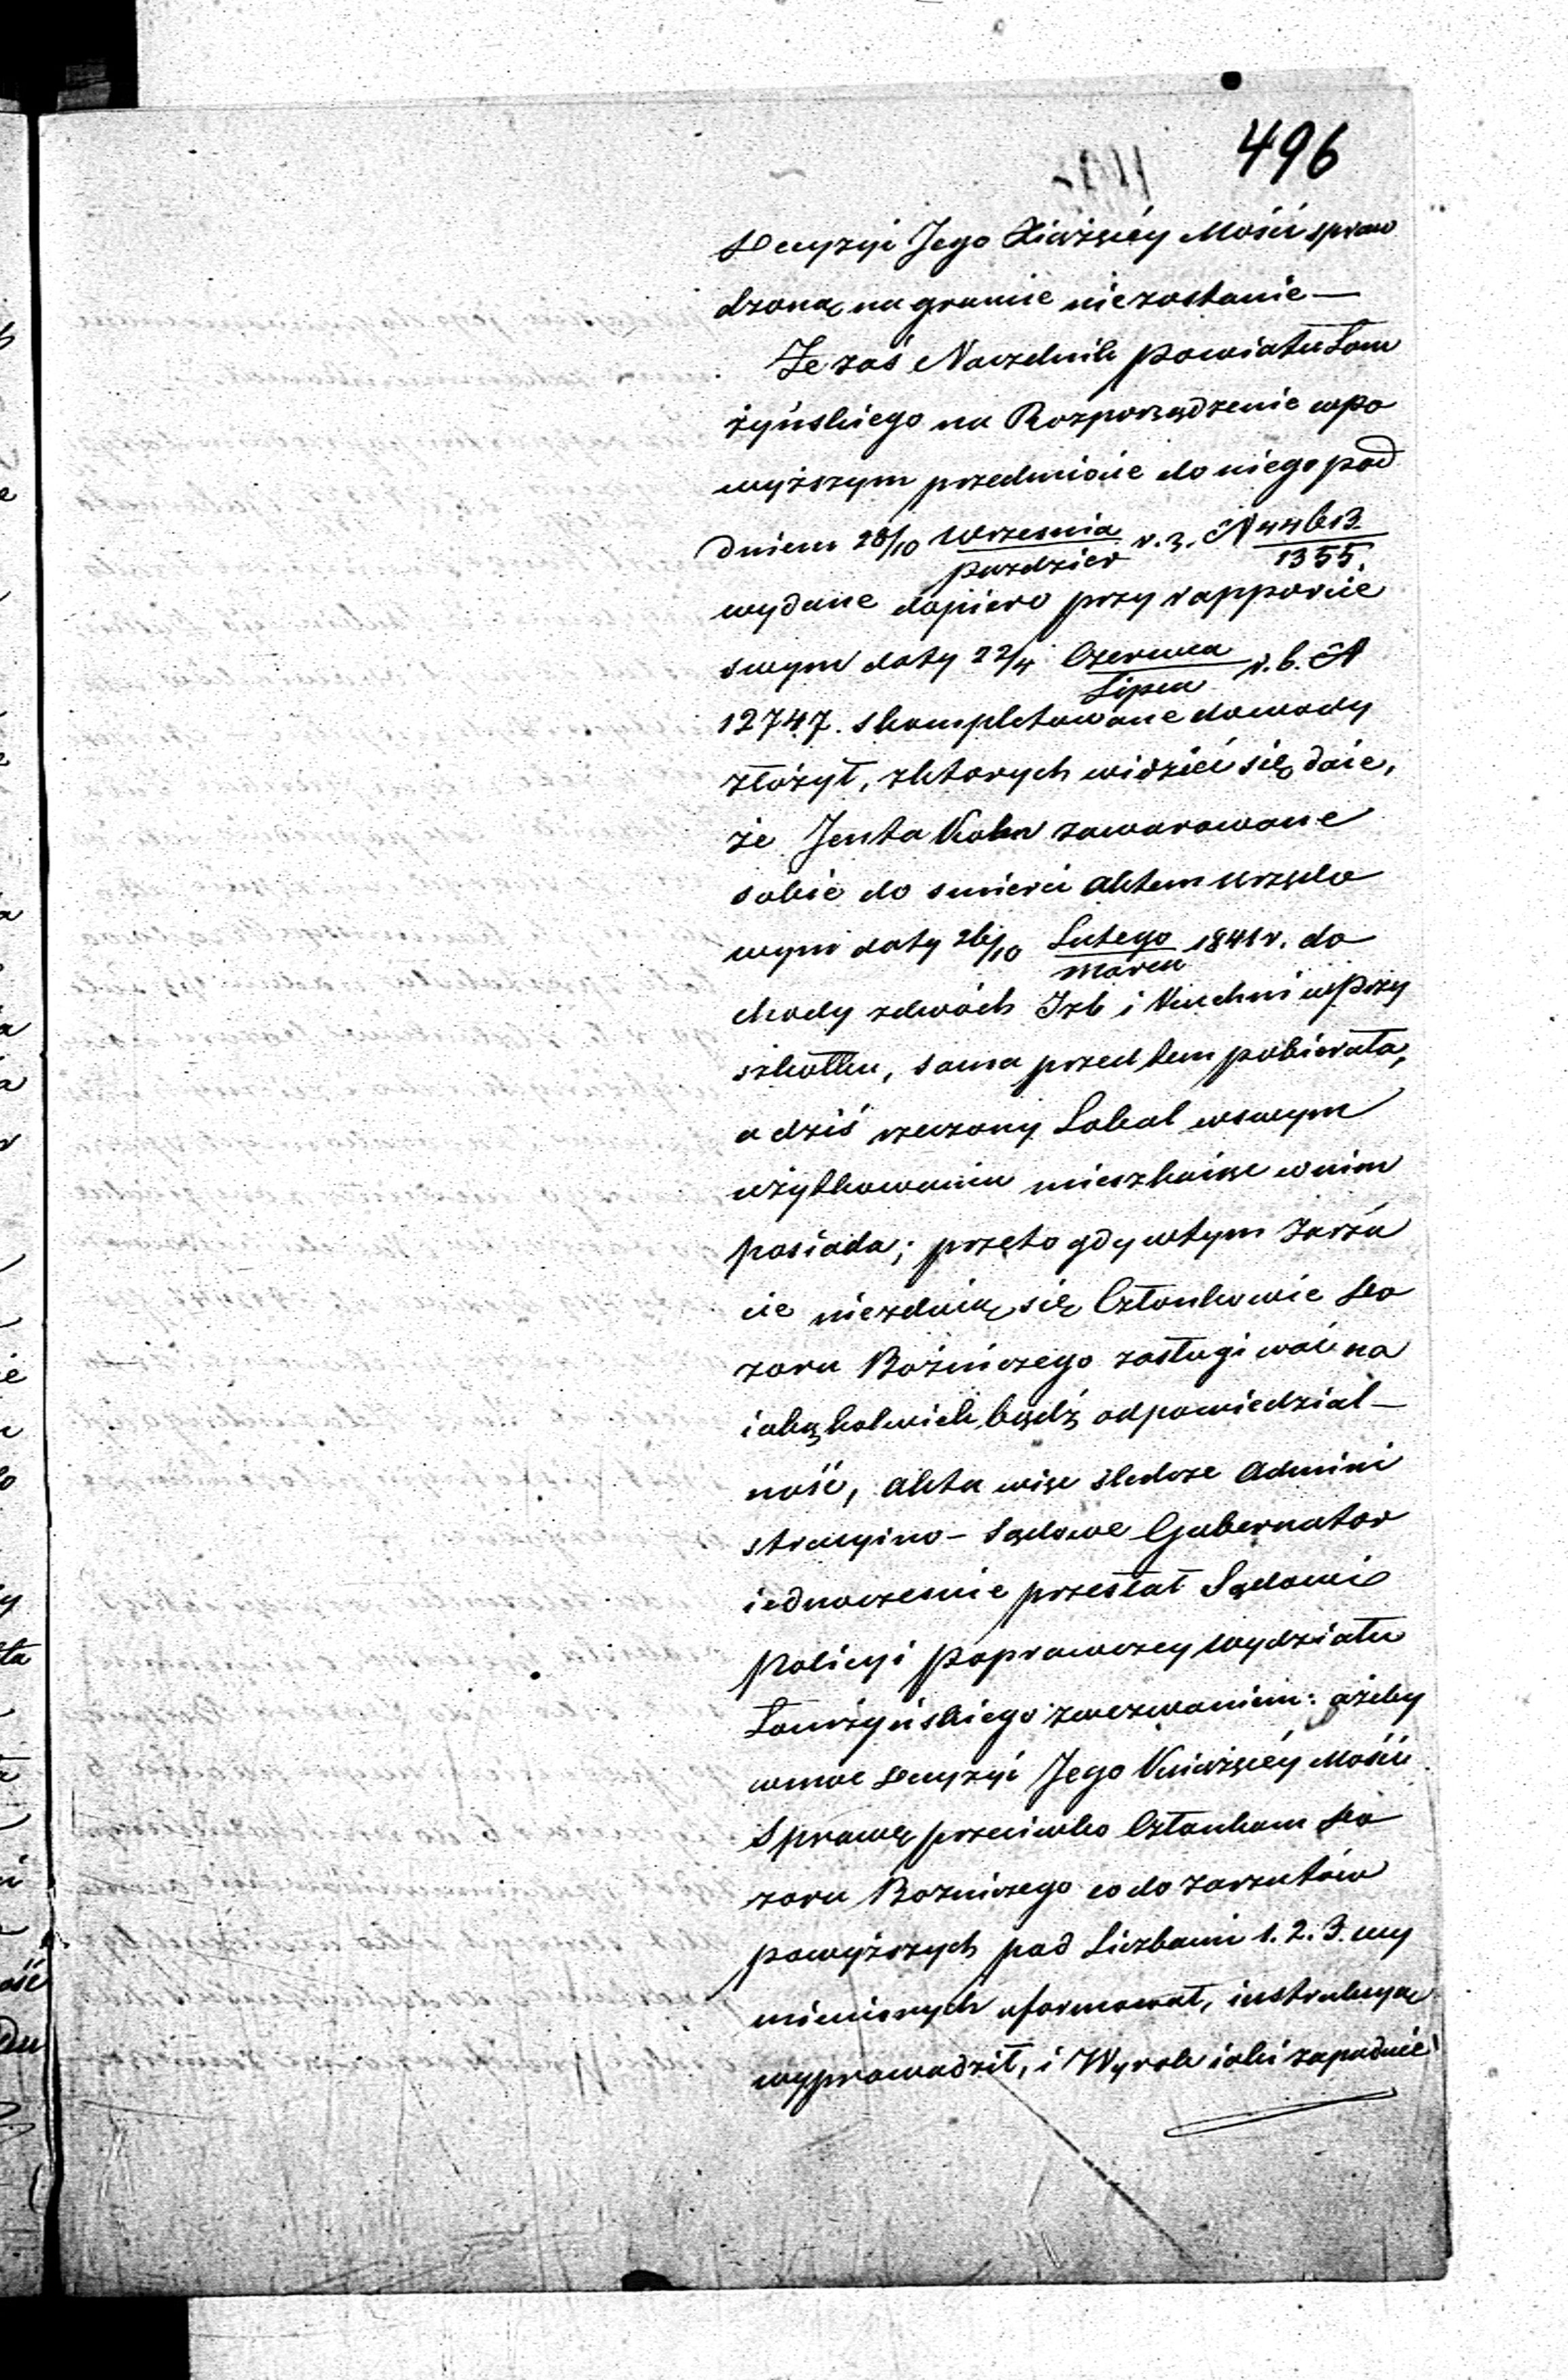 496
Decyzyi Jego Xiążęcéy Mości spraw
dzoną na gruncie niezostanie —
Że zaś Naczelnik Powiatu Łom
żyńskiego na Rozporządzenie wpo
wyższym przedmiocie do niego pod
dniem 28/10 Września/Paździer r. z. N 44613/1355.
wydane dopiero przy rapporcie
swym daty 22/4 Czerwca/Lipca r. b. N
12747. skompletowane dowody
złożył, zktorych widzieć się daie,
że Jenta Kohn zawarowane
sobie do smierci Aktem urzędo
wym daty 26/10 Lutego/Marca 1841 r. do
chody zdwóch Izb i Kuchni wPrzy
szkołku, sama przedtem pobierała,
a dziś rzeczony Lokal wswym
użytkowaniu mieszkaiąc wnim
posiada; przeto gdy wtym Zarzu
cie niezdaią się Członkowie Do
zoru Bożniczego zasługiwać na
iakąkolwiek bądź odpowiedzial-
ność, Akta więc śledcze Admini
stracyino - Sądowe Gubernator
iednoczesnie przesłał Sądowi
Policyi Poprawczey Wydziału
Łomżyńskiego zwezwaniem: ażeby
wmoc Decyzyi Jego Xiążęcéy Mości
Sprawę przeciwko Członkom Do
zoru Bozniczego co do zarzutów
powyższych pod Liczbami 1. 2. 3. wy
mienionych uformował, instrukcyą
wyprowadził, i Wyrok iaki zapadnie